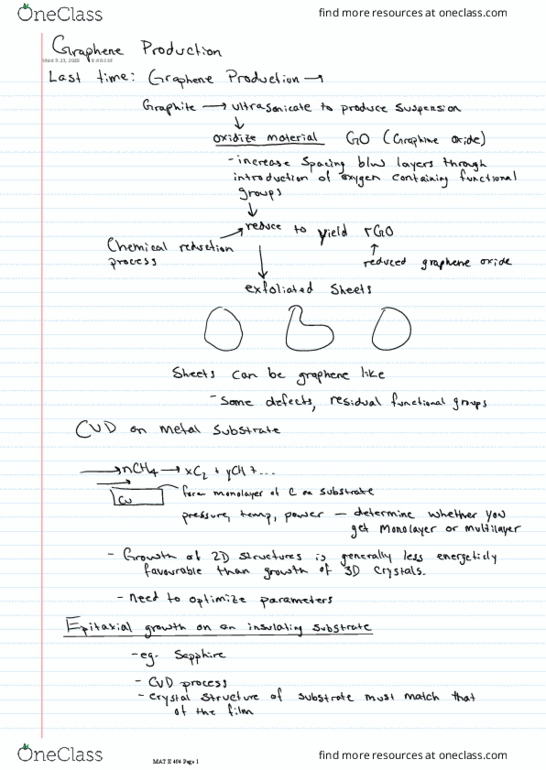 OneClass
find more resources at oneclass.com
Graphene Production
Last time: Graphene Production →
Graphite → ultrasonicate to produce suspension
↓
oxidize material GO (Graphine Oxide)
- increase spacing b/w layers through
introduction of oxygen containing functional
groups
↓
Chemical reduction process
→ reduce to yield rGO
↑
reduced graphene oxide
↓
exfoliated sheets
Sheets can be graphene like
- Some defects, residual functional groups
CVD on metal substrate
→ nCH4 → xC2 + yCH + ...
Cu
form monolayer of C on substrate
pressure, temp, power — determine whether you
get monolayer or multilayer
- Growth of 2D structures is generally less energeticly
favourable than growth of 3D crystals.
- need to optimize parameters
Epitaxial growth on an insulating substrate
- eg. Sapphire
- CVD process
- crystal structure of substrate must match that
of the film
OneClass
MAT E 494 Page 1
find more resources at oneclass.com